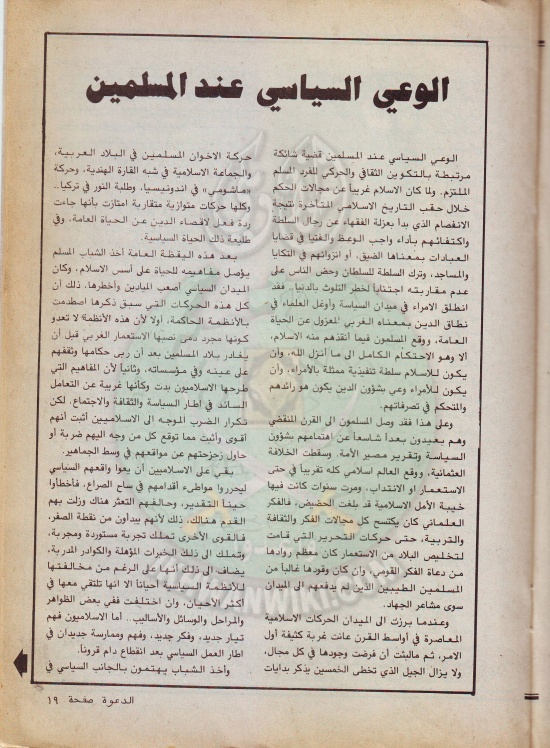 الوعي السياسي عند المسلمين
الوعي السياسي عند المسلمين قضية شائكة
مرتبطة بالتكوين الثقافي والحركي للفرد المسلم
الملتزم. ولما كان الاسلام غريباً عن مجالات الحكم
خلال حقب التاريخ الاسلامي المتأخرة نتيجة
الانفصام الذي بدأ بعزلة الفقهاء عن رجال السلطة
واكتفائهم بأداء واجب الوعظ والفتيا في قضايا
العبادات بمعناها الضيق، أو انزوائهم في التكايا
والمساجد، وترك السلطة للسلطان وحض الناس على
عدم مقاربته اجتناباً لخطر التلوث بالدنيا.. فقد
انطلق الامراء في ميدان سياسة وأوغل العلماء في
نطاق الدين بمعناه الغربي المعزول عن الحياة
العامة، ووقع المسلمون فيما أنقذهم منه الاسلام،
ألا وهو الاحتكام الكامل الى ما أنزل الله، وأن
يكون للأسلام سلطة تنفيذية ممثلة بالأمراء، وأن
يكون للأمراء وعي بشؤون الدين يكون هو رائدهم
والمتحكم في تصرفاتهم.
وعلى هذا فقد وصل المسلمون الى القرن المنقضي
وهم بعيدون بعداً شاسعاً عن اهتمامهم بشؤون
السياسة وتقرير مصير الأمة. وسقطت الخلافة
العثمانية، ووقع العالم اسلامي كله تقريباً في حتى
الاستعمار او الانتداب، ومرت سنوات كانت فيها
خيبة الأمل الاسلامية قد بلغت الحضيض، فالفكر
العلماني كان يكتسح كل مجالات الفكر والثقافة
والتربية، حتى حركات التحرير التي قامت
لتخليص البلاد من الاستعمار كان معظم روادها
من دعاة الفكر القومي، وان كان وقودها غالباً من
المسلمين الطيبين الذين لم يدفعهم الى الميدان
سوى مشاعر الجهاد.
وعندما برزت الى الميدان الحركات الاسلامية
المعاصرة في أواسط القرن عانت غربة كثيفة أول
الامر، ثم مالبثت أن فرضت وجودها في كل مجال،
ولا يزال الجيل الذي تخطى الخمسين يذكر بدايات
حركة الاخوان المسلمين في البلاد العربية،
والجماعة الاسلامية في شبه القارة الهندية، وحركة
«ماشومي» في اندونيسيا، وطلبة النور في تركيا..
وكلها حركات متوازية متقاربة امتازت بأنها جاءت
ردة فعل لاقصاء الدين عن الحياة العامة، وفي
طليعة ذلك الحياة السياسية.
بعد هذه اليقظة العامة أخذ الشباب المسلم
يؤصل مفاهيمه للحياة على أسس الاسلام، وكان
الميدان السياسي أصعب الميادين وأخطرها، ذلك أن
كل هذه الحركات التي سبق ذكرها اصطدمت
بالأنظمة الحاكمة، أولا لأن هذه الأنظمة لا تعدو
كونها مجرد دمى نصبها الاستعمار الغربي قبل أن
يغادر بلاد المسلمين بعد أن ربى حكامها وثقفهم
على عينه وفي مؤسساته، وثانياً لأن المفاهيم التي
طرحها الاسلاميون بدت وكأنها غريبة عن التعامل
السائد في اطار السياسة والثقافة والاجتماع. لكن
تكرار الضرب الموجه الى الاسلاميين أثبت أنهم
أقوى وأثبت مما توقع كل من وجه اليهم ضربة أو
حاول زحزحتهم عن مواقعهم في وسط الجماهير.
بقي على الاسلاميين أن يعوا واقعهم السياسي
ليحرروا مواطىء أقدامهم في ساح الصراع، فأخطأوا
حيناً التقدير، وحالفهم التعثر هناك وزلت بهم
القدم هنالك، ذلك لأنهم يبدأون من نقطة الصفر،
فالقوى الأخرى تملك تجربة مستوردة ومجربة،
وتملك الى ذلك الخبرات المؤهلة والكوادر المدربة،
يضاف الى ذلك أنها على الرغم من مخالفتها
للأنظمة السياسية أحياناً الا انها تلتقي معها في
أكثر الأحيان، وان اختلفت ففي بعض الظواهر
والمراحل والوسائل والأساليب.. أما الاسلاميون فهم
تيار جديد، وفكر جديد، وفهم وممارسة جديدان في
اطار العمل السياسي بعد انقطاع دام قرونا.
وأخذ الشباب يهتمون بالجانب السياسي في
الدعوة صفحة ١٩